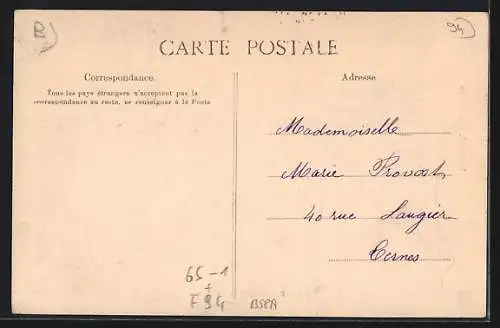 B
94
CARTE POSTALE
Correspondance.
Tous les pays étrangers n'acceptent pas la
correspondance au recto, se renseigner à la Poste
Adresse
Mademoiselle
Marie Provost
40 rue Laugier
Ternes
65-1
+
F 94
BSPA